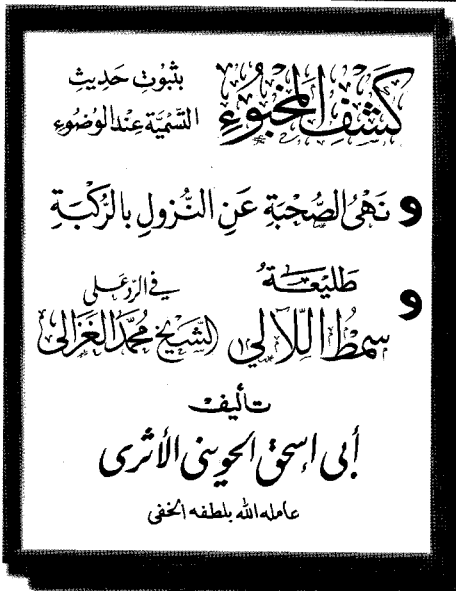 كَشْفُ المَخْبُوءِ بِثُبُوتِ حَدِيثِ
التَّسْمِيَةِ عِنْدَ الوُضُوءِ
و نَهْىُ الصُّحْبَةِ عَنِ النُّزُولِ بِالرُّكْبَةِ
و طَلِيعَةُ
سِمْطُ اللَّآلِي في الرَّدِّ عَلى الشَّيْخِ مُحَمَّد الغَزَالى
تأليف
أبى إسحق الحوينى الأثرى
عامله الله بلطفه الخفى